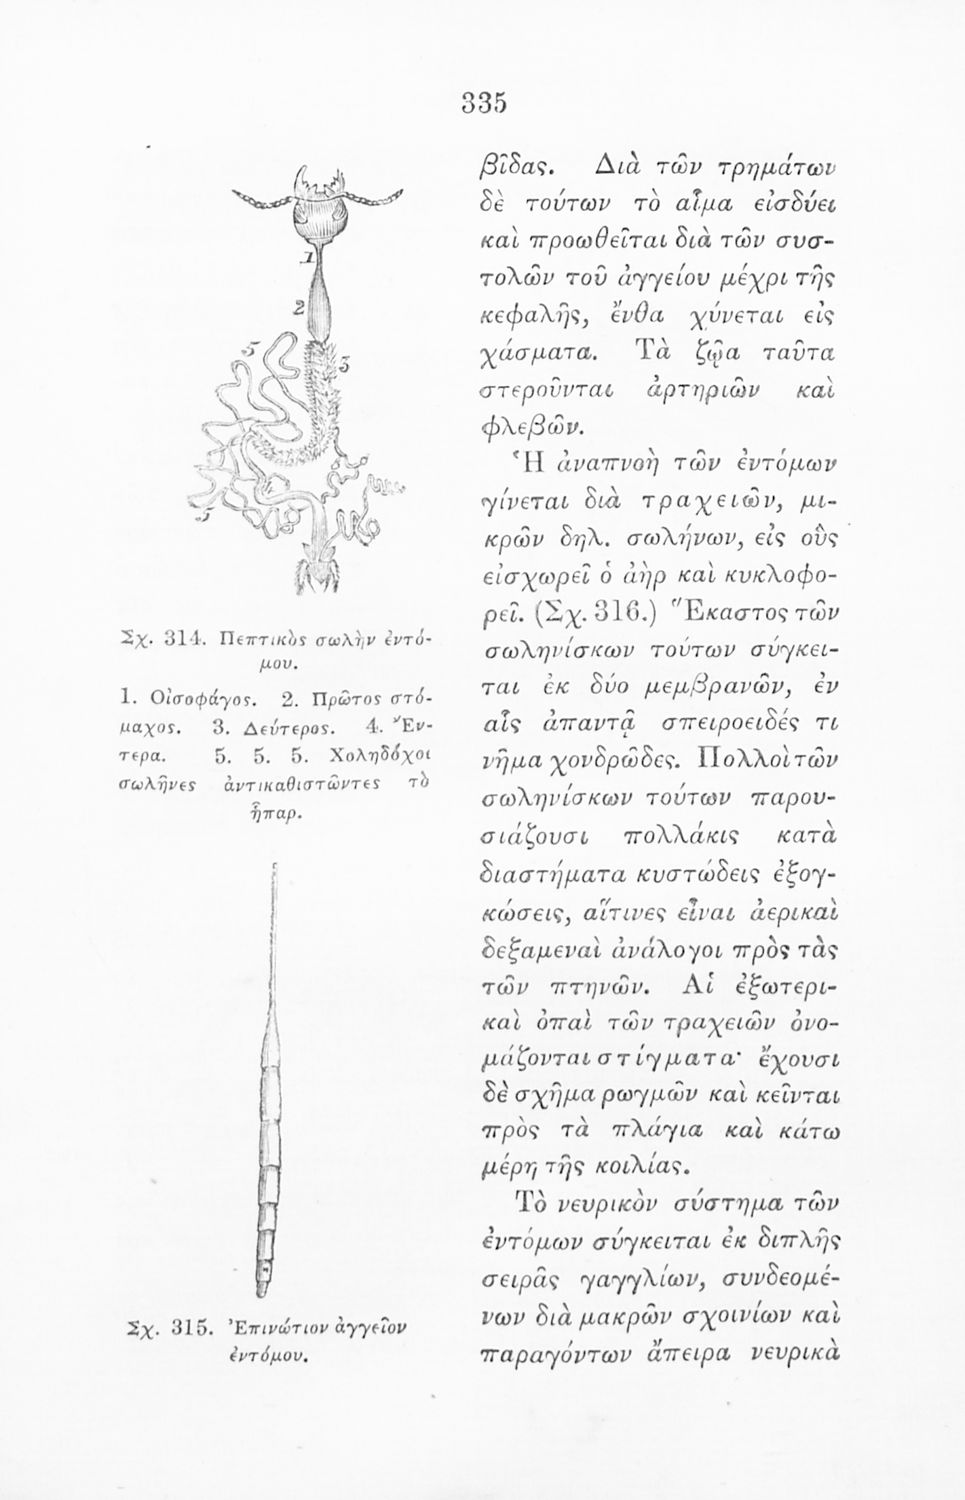 335
1
2
3
5
5
Σχ. 314. Πεπτικὸς σωλὴν ἐντό-
μου.
1. Οἰσοφάγος. 2. Πρῶτος στό-
μαχος. 3. Δεύτερος. 4. Ἔν-
τερα. 5. 5. 5. Χοληδόχοι
σωλῆνες ἀντικαθιστῶντες τὸ
ἧπαρ.
Σχ. 315. Ἐπινώτιον ἀγγεῖον
ἐντόμου.
βῖδας. Διὰ τῶν τρημάτων
δὲ τούτων τὸ αἷμα εἰσδύει
καὶ προωθεῖται διὰ τῶν συσ-
τολῶν τοῦ ἀγγείου μέχρι τῆς
κεφαλῆς, ἔνθα χύνεται εἰς
χάσματα. Τὰ ζῷα ταῦτα
στεροῦνται ἀρτηριῶν καὶ
φλεβῶν.
Ἡ ἀναπνοὴ τῶν ἐντόμων
γίνεται διὰ τραχειῶν, μι-
κρῶν δηλ. σωλήνων, εἰς οὓς
εἰσχωρεῖ ὁ ἀὴρ καὶ κυκλοφο-
ρεῖ. (Σχ. 316.) Ἕκαστος τῶν
σωληνίσκων τούτων σύγκει-
ται ἐκ δύο μεμβρανῶν, ἐν
αἷς ἀπαντᾷ σπειροειδές τι
νῆμα χονδρῶδες. Πολλοὶ τῶν
σωληνίσκων τούτων παρου-
σιάζουσι πολλάκις κατὰ
διαστήματα κυστώδεις ἐξογ-
κώσεις, αἵτινες εἶναι ἀερικαὶ
δεξαμεναὶ ἀνάλογοι πρὸς τὰς
τῶν πτηνῶν. Αἱ ἐξωτερι-
καὶ ὀπαὶ τῶν τραχειῶν ὀνο-
μάζονται στίγματα· ἔχουσι
δὲ σχῆμα ρωγμῶν καὶ κεῖνται
πρὸς τὰ πλάγια καὶ κάτω
μέρη τῆς κοιλίας.
Τὸ νευρικὸν σύστημα τῶν
ἐντόμων σύγκειται ἐκ διπλῆς
σειρᾶς γαγγλίων, συνδεομέ-
νων διὰ μακρῶν σχοινίων καὶ
παραγόντων ἄπειρα νευρικὰ